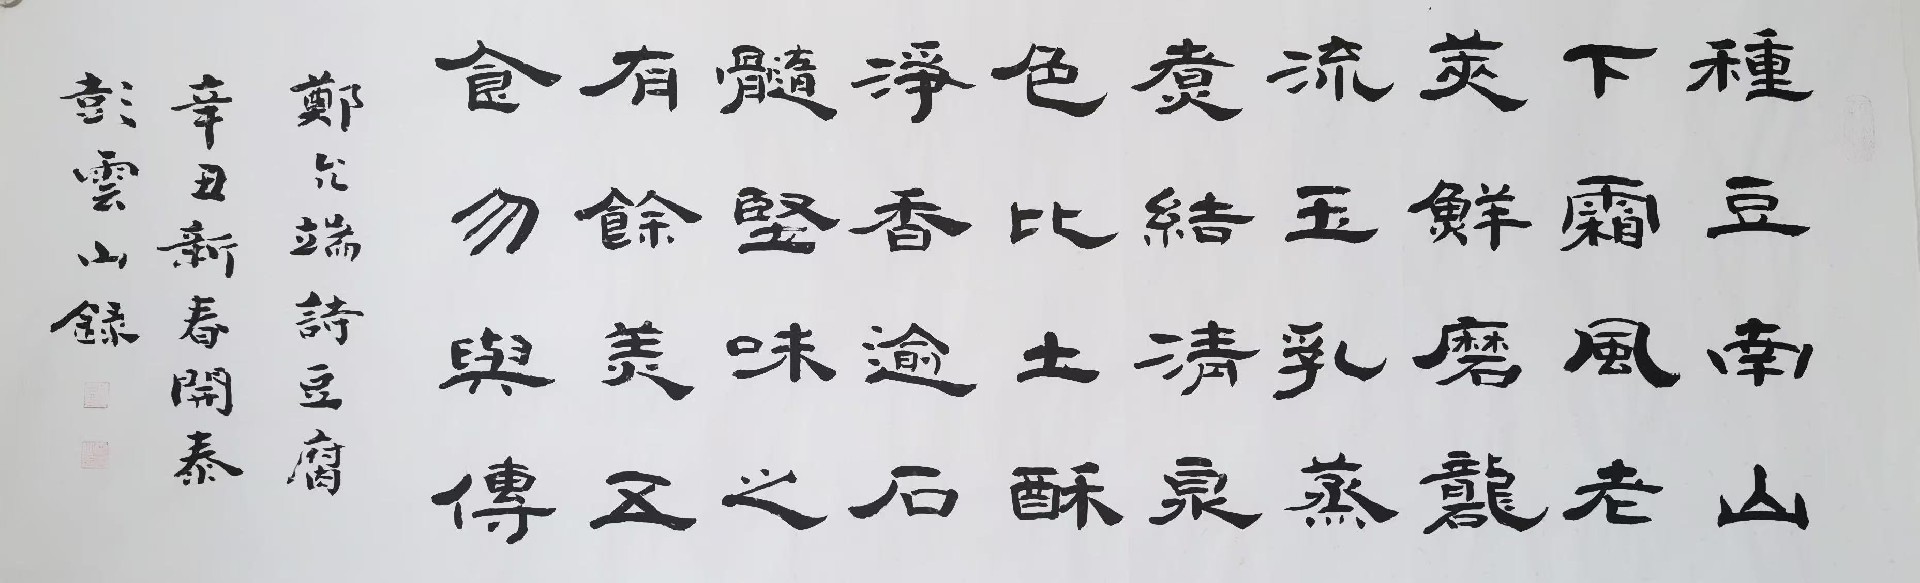 種豆南山
下霜風老
莢鮮磨龍
流玉乳蒸
煮結清泉
色比土酥
淨香逾石
髓堅味之
有餘美五
食勿與傳
鄭允端詩豆腐
辛丑新春開泰
彭雲山錄